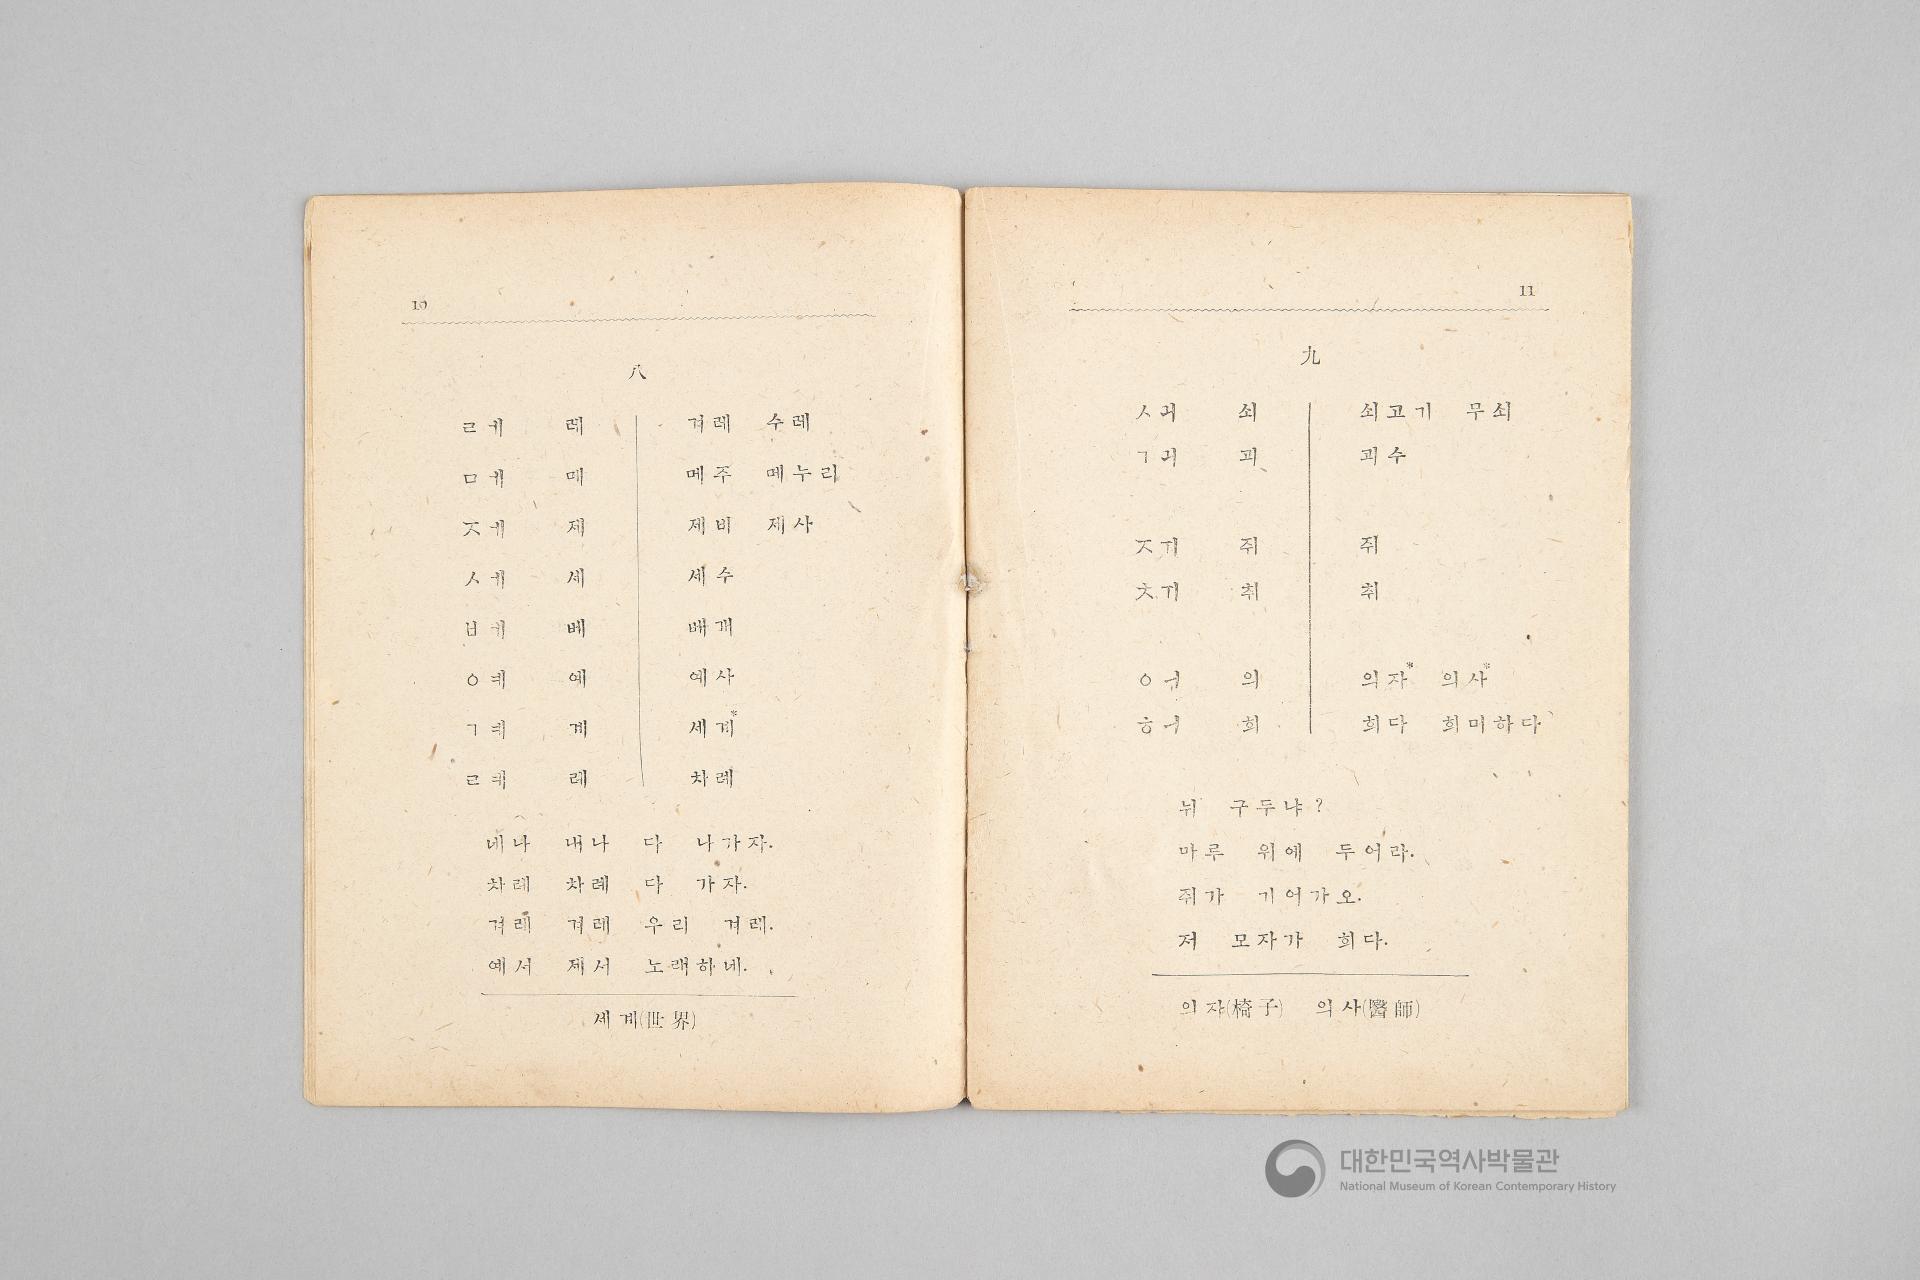 10
八
ㄹㅔ 레 겨레 수레
ㅁㅔ 메 메주 메누리
ㅈㅔ 제 제비 제사
ㅅㅔ 세 세수
ㅂㅔ 베 베개
ㅇㅖ 예 예사
ㄱㅖ 계 세계*
ㄹㅖ 례 차례
네나 내나 다 나가자.
차례 차례 다 가자.
겨레 겨레 우리 겨레.
예서 제서 노래하네.
세계(世界)
11
九
ㅅㅚ 쇠 쇠고기 무쇠
ㄱㅚ 괴 괴수
ㅈㅟ 쥐 쥐
ㅊㅟ 취 취
ㅇㅢ 의 의자* 의사*
ㅎㅢ 희 희다 희미하다
뉘 구두냐?
마루 위에 두어라.
쥐가 기어가오.
저 모자가 희다.
의자(椅子) 의사(醫師)
대한민국역사박물관
National Museum of Korean Contemporary History